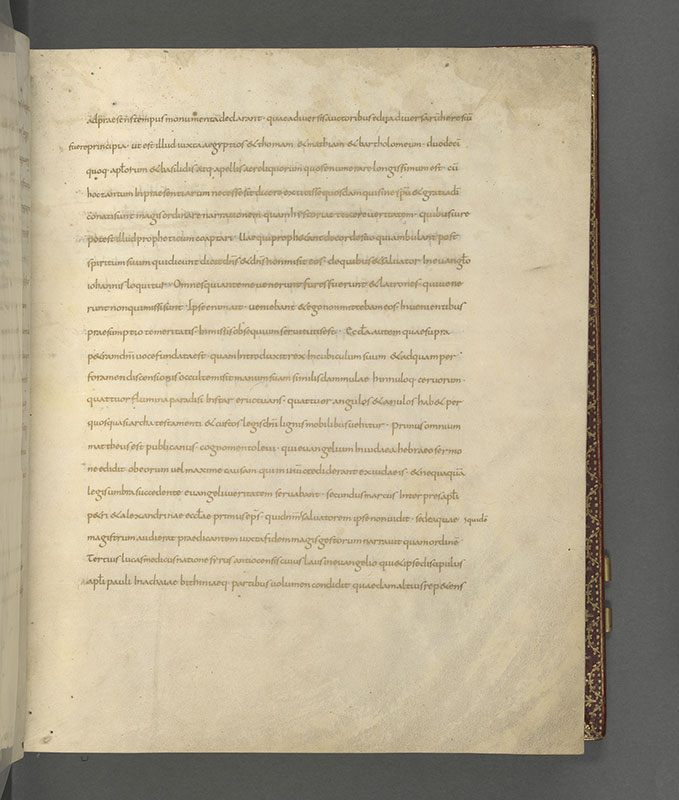 ad praesens tempus monumenta declarant · quae a diversis auctoribus edita diversarum heresiū
fuere principia · ut est illud iuxta aegyptios & thomam & mathiam & bartholomeum · duodeci
quoq· aplorum & basilidis atq· apellis ac reliquorum quos enumerare longissimum est · cū
hoc tantum in praesentiarum necesse sit dicere extitisse quosdam qui sine spu & gratia di
conati sunt magis ordinare narrationem quam historiae texere veritatem · quibus iure
potest illud propheticum coaptari · Uae qui prophetant de corde suo qui ambulant post
spiritum suum qui dicunt dicit dns & dns non misit eos · de quibus & salvator in evanglo
iohannis loquitur · Omnes qui ante me venerunt fures fuerunt & latrones · qui vene
runt non qui missi sunt · Ipse enim ait · veniebant & ego non mittebam eos · In venientibus
praesumptio temeritatis · in missis obsequium servitutis est · Eccla autem quae supra
petram dni voce fundata est · quam introduxit rex in cubiculum suum & ad quam per
foramen discensionis occulte misit manum suam similis dammulae hinnuloq· cervorum ·
quattuor flumina paradisi instar eructuans · quattuor angulos & anulos hab& per
quos quasi archa testamenti & custos legis dni lignis mobilibus vehitur · Primus omnium
mattheus est publicanus · cognomento levi · qui evangelium in iudaea hebraeo sermo
ne edidit ob eorum vel maxime causam qui in iesum crediderant ex iudaeis · & nequaquā
legis umbra succedente evangelii veritatem servabant · secundus marcus interpres apli
petri & alexandrinae ecclae primus eps · qui dnm salvatorem ipse non vidit · sed ea quae
quidē
magistrum audierat praedicantem iuxta fidem magis gestorum narravit quam ordinē
Tertius lucas medicus natione syrus antiocensis cuius laus in evangelio qui & ipse discipulus
apli pauli in achaiae bithiniaeq· partibus volumen condidit quaedam altius repetens